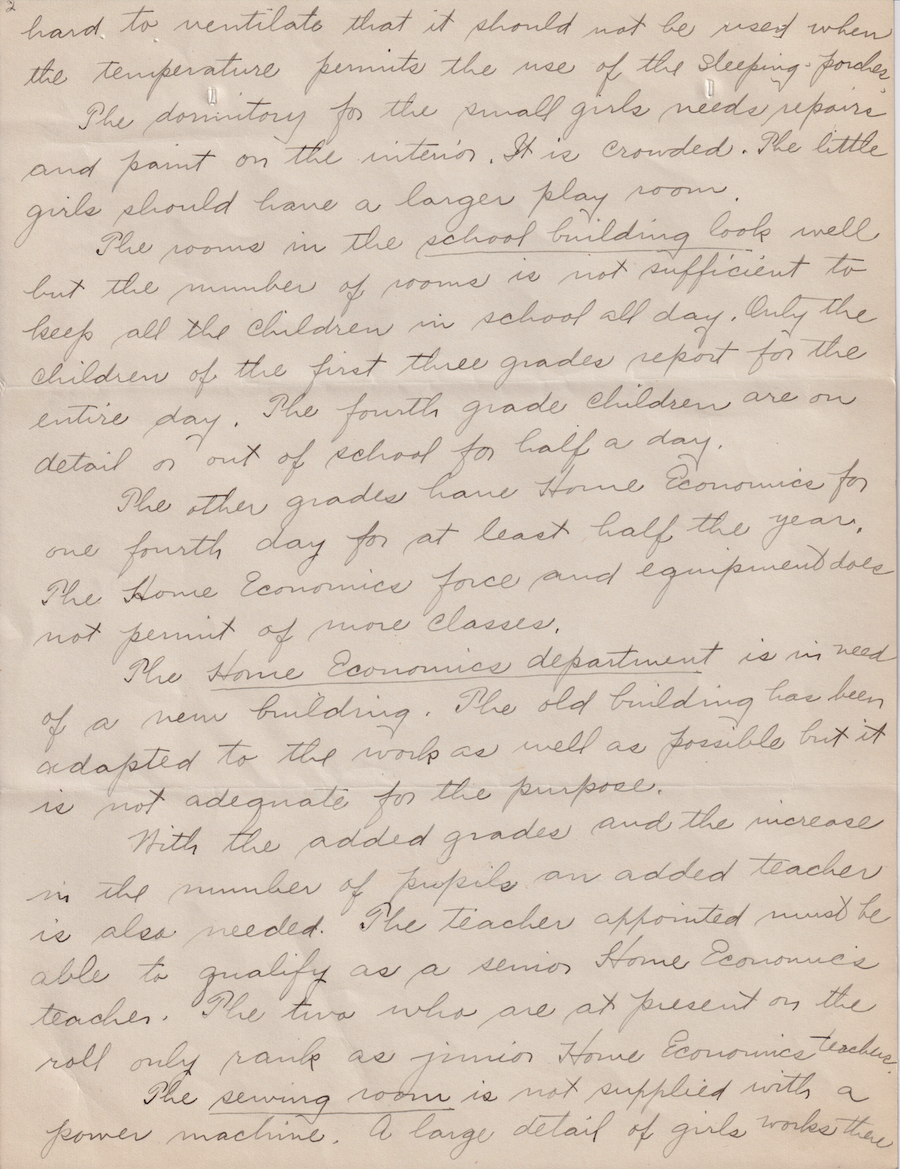 2
hard to ventilate that it should not be used when
the temperature permits the use of the sleeping-porches.
The dormitory for the small girls needs repairs
and paint on the interior. It is crowded. The little
girls should have a larger play room.
The rooms in the school building look well
but the number of rooms is not sufficient to
keep all the children in school all day. Only the
children of the first three grades report for the
entire day. The fourth grade children are on
detail or out of school for half a day.
The other grades have Home Economics for
one fourth day for at least half the year.
The Home Economics force and equipment does
not permit of more classes.
The Home Economics department is in need
of a new building. The old building has been
adapted to the work as well as possible but it
is not adequate for the purpose.
With the added grades and the increase
in the number of pupils an added teacher
is also needed. The teacher appointed must be
able to qualify as a senior Home Economics
teacher. The two who are at present on the
roll only rank as junior Home Economics teachers.
The sewing room is not supplied with a
power machine. A large detail of girls works there